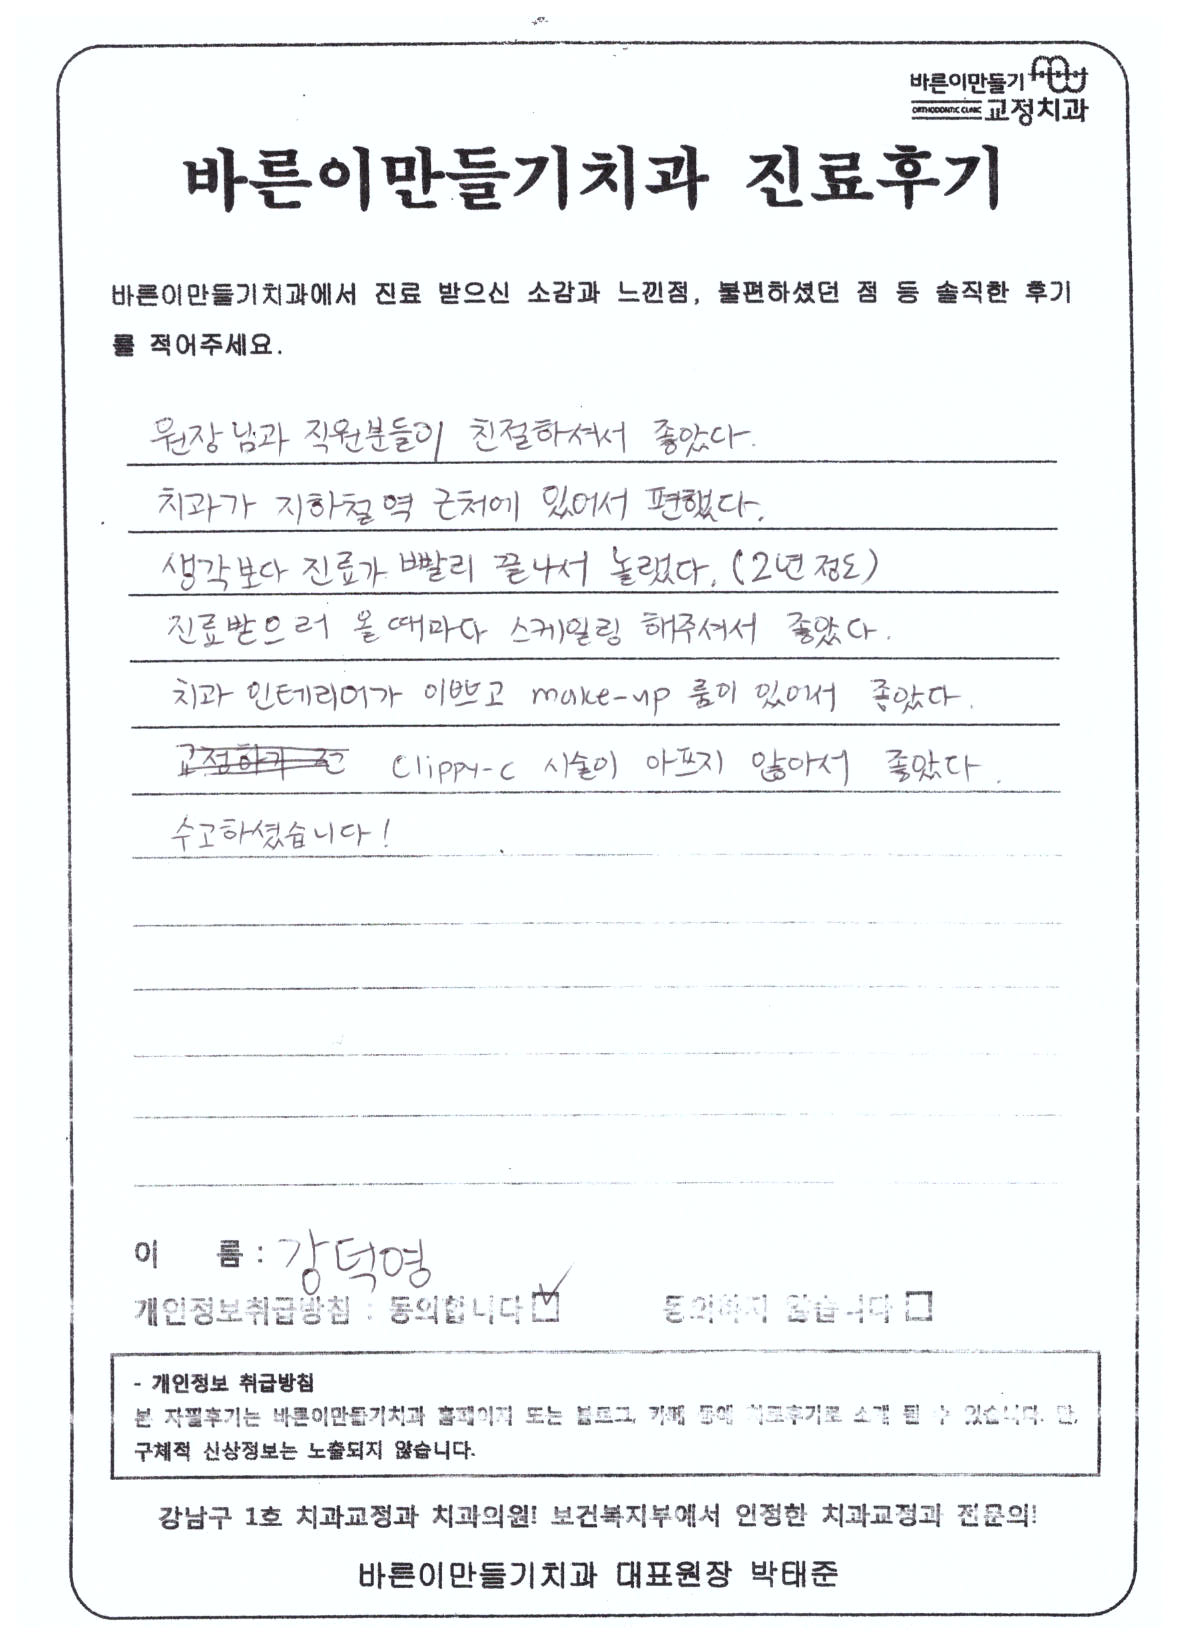 바른이만들기
ORTHODONTIC CLINIC 교정치과
바른이만들기치과 진료후기
바른이만들기치과에서 진료 받으신 소감과 느낀점, 불편하셨던 점 등 솔직한 후기
를 적어주세요.
원장님과 직원분들이 친절하셔서 좋았다.
치과가 지하철역 근처에 있어서 편했다.
생각보다 진료가 빨리 끝나서 놀랬다. (2년 정도)
진료받으러 올 때마다 스케일링 해주셔서 좋았다.
치과 인테리어가 이쁘고 make-up 룸이 있어서 좋았다.
교정하기 전 Clippy-c 시술이 아프지 않아서 좋았다.
수고하셨습니다!
이 름 : 강덕영
개인정보취급방침 : 동의합니다 동의하지 않습니다
- 개인정보 취급방침
본 자필후기는 바른이만들기치과 홈페이지 또는 블로그, 카페 등에 치료후기로 소개 될 수 있습니다. 단,
구체적 신상정보는 노출되지 않습니다.
강남구 1호 치과교정과 치과의원! 보건복지부에서 인정한 치과교정과 전문의!
바른이만들기치과 대표원장 박태준